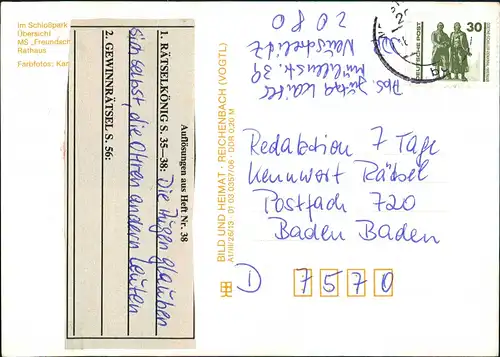 Im Schloßpark
Übersicht
MS „Freundsch
Rathaus
Farbfotos: Kar
Auflösungen aus Heft Nr. 38
1. RÄTSELKÖNIG S. 35–38: Die Augen glauben
sich selbst, die Ohren andern Leuten
2. GEWINNRÄTSEL S. 56:
BILD UND HEIMAT · REICHENBACH (VOGTL)
A1/III/26/13 · 01 03 0357/06 · DDR 0,20 M
Abs
Mühlenstr. 39
Neustrelitz
2080
DEUTSCHE POST
30
Redaktion 7 Tage
Kennwort Rätsel
Postfach 720
Baden Baden
D 7570